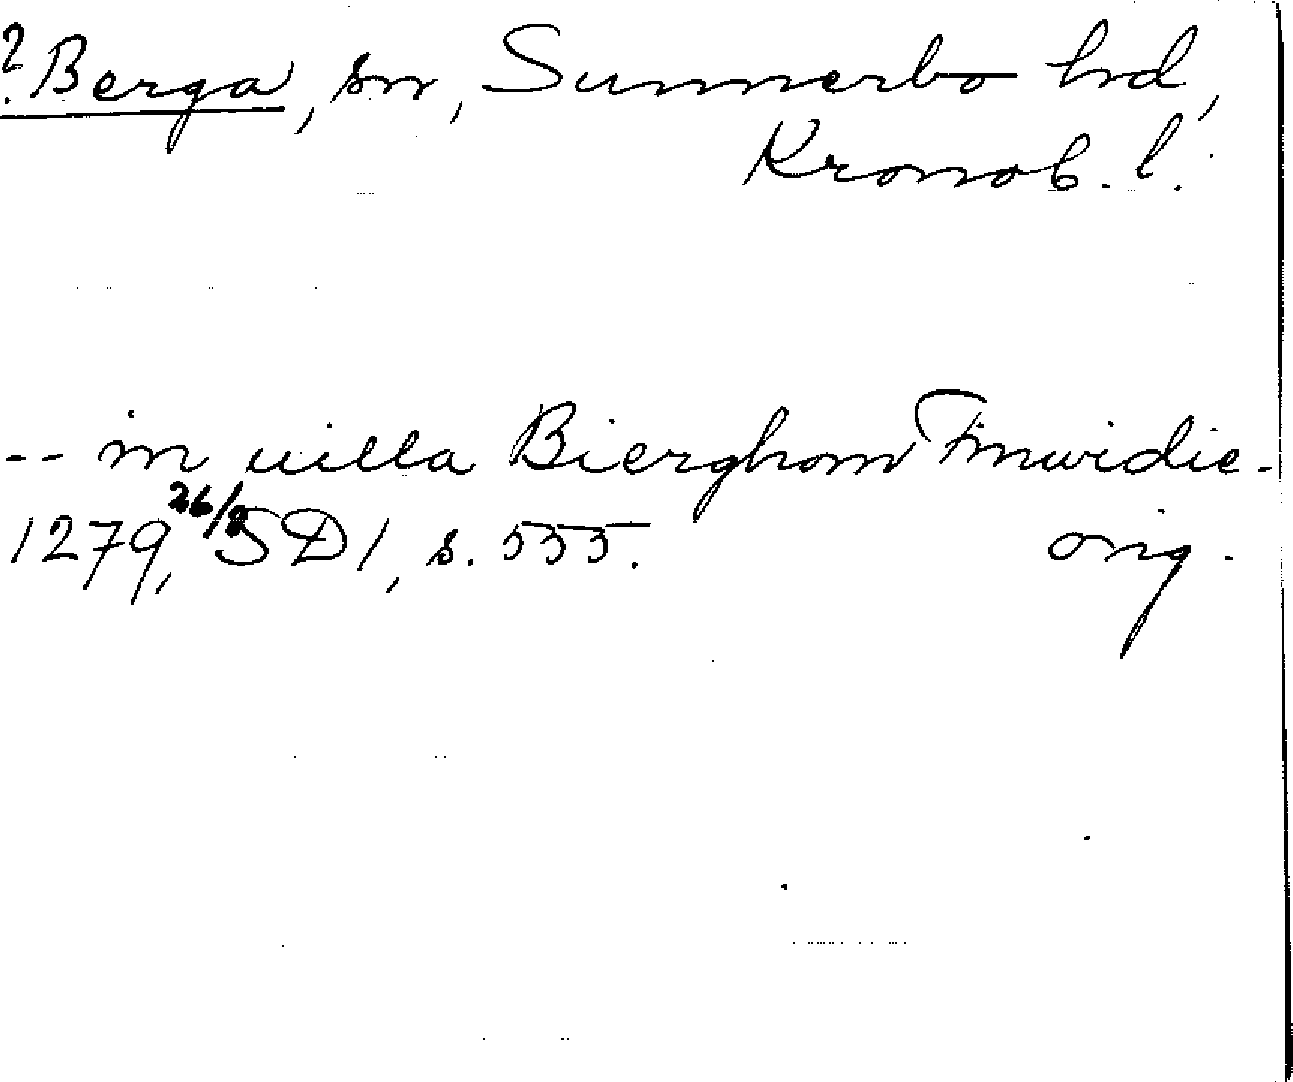 ? Berga, sn, Sunnerbo hd,
Kronob. l.
-- in uilla Bierghom Finwidie.
1279, 26/8 SD 1, s. 555. orig.